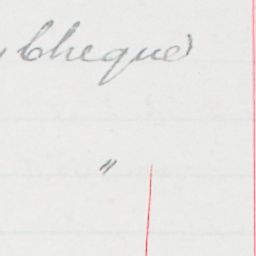 Cheque
"